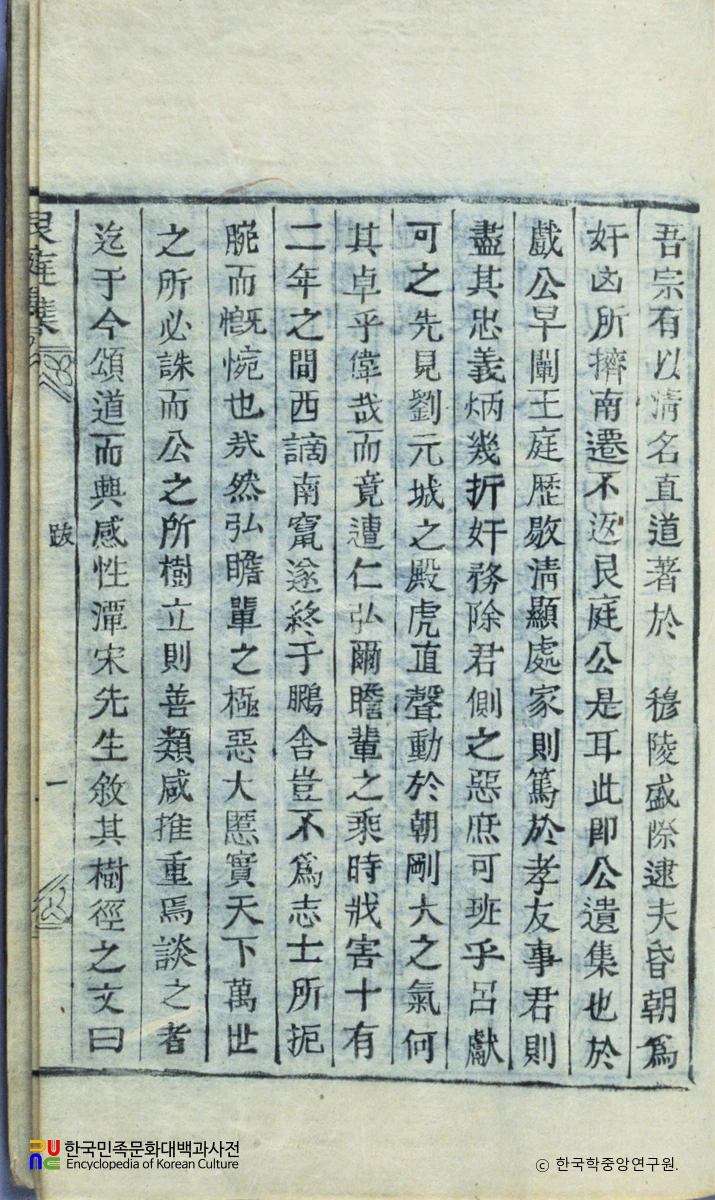 吾宗有以淸名直道著於 穆陵盛際逮夫昏朝爲
奸凶所擠南遷不返艮庭公是耳此卽公遺集也於
戱公早闡王庭歷敭淸顯處家則篤於孝友事君則
盡其忠義炳幾折奸務除君側之惡庶可班乎呂獻
可之先見劉元城之殿虎直聲動於朝剛大之氣何
其卓乎偉哉而竟遭仁弘爾瞻輩之乘時戕害十有
二年之間西謫南竄遂終于鵩舍豈不爲志士所扼
腕而慨惋也㦲然弘瞻輩之極惡大憝實天下萬世
之所必誅而公之所樹立則善類咸推重焉談之者
迄于今頌道而興感性潭宋先生敘其樹徑之文曰
艮庭集
跋
一
한국민족문화대백과사전
Encyclopedia of Korean Culture
ⓒ 한국학중앙연구원.